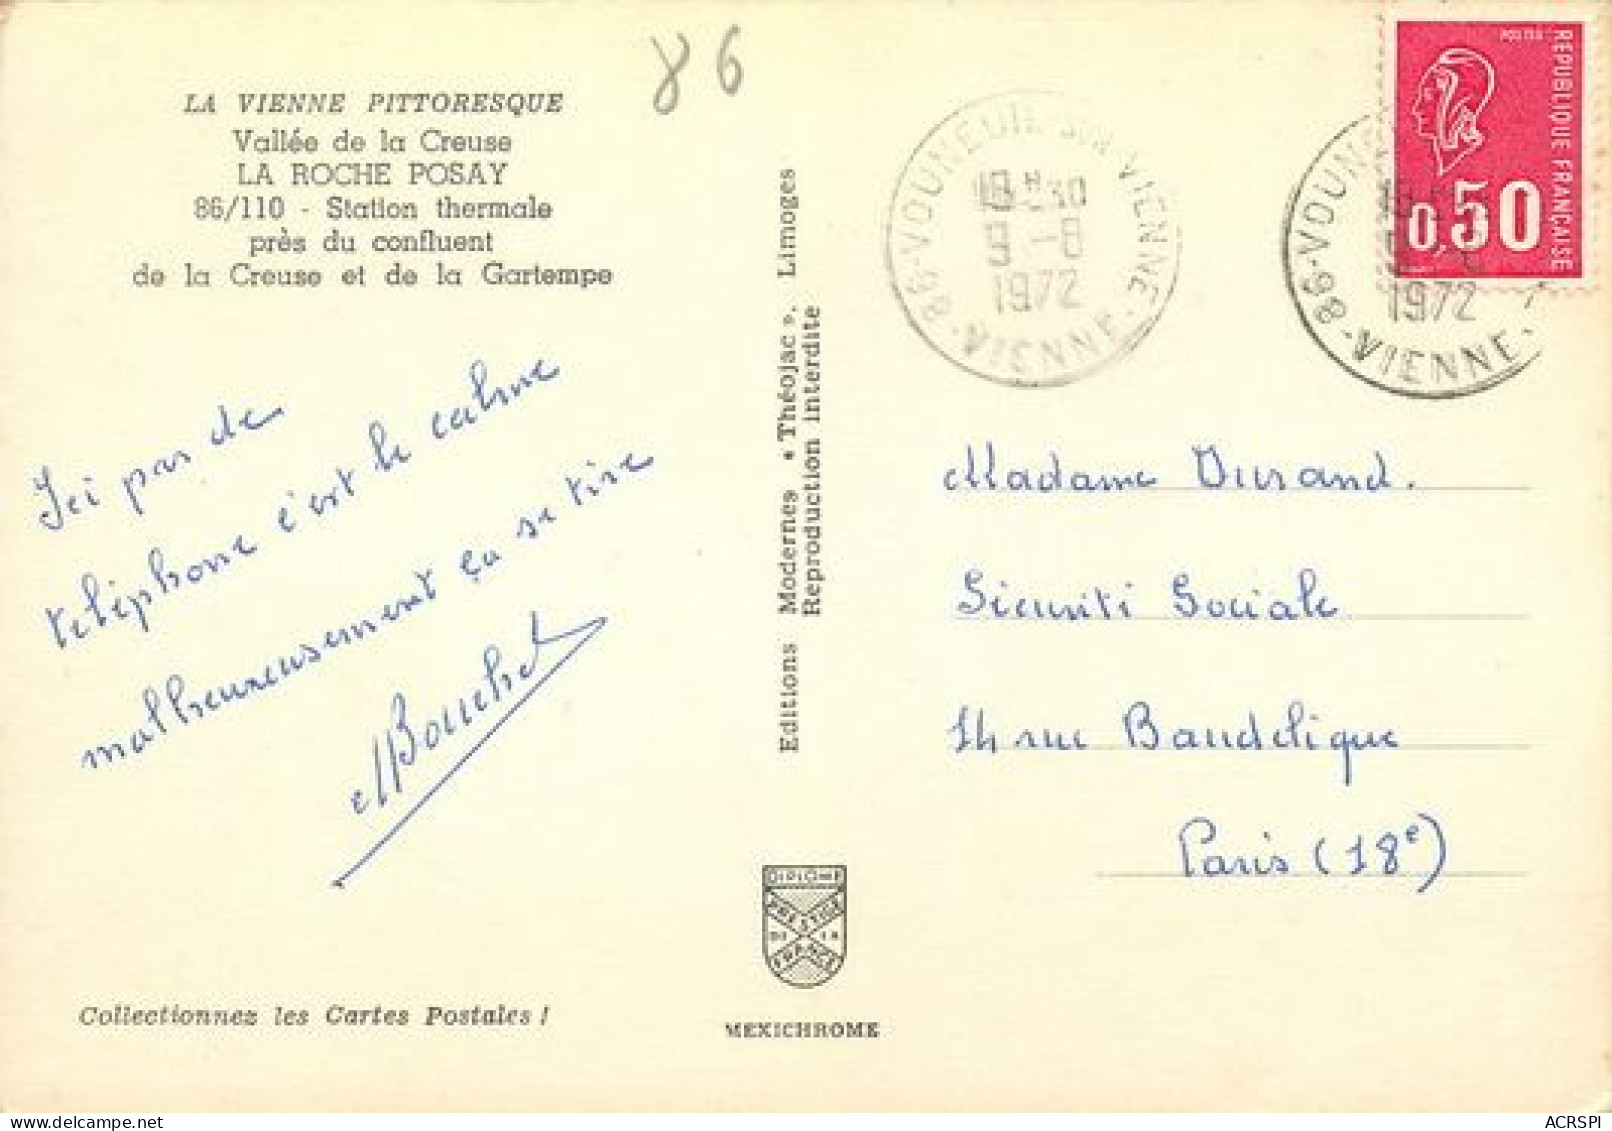 86
LA VIENNE PITTORESQUE
Vallée de la Creuse
LA ROCHE POSAY
86/110 - Station thermale
près du confluent
de la Creuse et de la Gartempe
Ici pas de
téléphone c'est le calme
malheureusement ça se tire
MBouchet
Collectionnez les Cartes Postales !
Editions Modernes « Théojac ». Limoges
Reproduction interdite
DIPLOME
PRESTIGE
DE LA
FRANCE
MEXICHROME
86-VOUNEUIL-SUR-VIENNE.
18H30
9 -8
1972
VIENNE
POSTES
REPUBLIQUE FRANÇAISE
0,50
86-VOUN
1972
VIENNE
Madame Durand.
Sécurité Sociale
14 rue Baudelique
Paris (18e)
ACRSPI